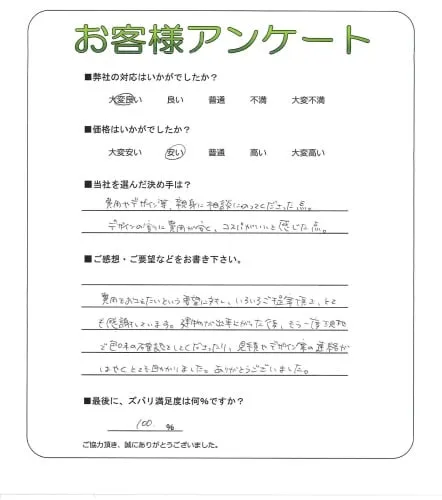 お客様アンケート
■弊社の対応はいかがでしたか?
大変良い 良い 普通 不満 大変不満
■価格はいかがでしたか?
大変安い 安い 普通 高い 大変高い
■当社を選んだ決め手は?
費用やデザイン等、親身に相談にのってくださった点。
デザインの割に費用が安く、コスパがいいと感じた点。
■ご感想・ご要望などをお書き下さい。
費用をおさえたいという要望に対し、いろいろご提案頂き、とて
も感謝しています。建物が出来上がった後、もう一度現地
で色味の確認をしてくださったり、見積やデザイン案の連絡が
はやくとても助かりました。ありがとうございました。
■最後に、ズバリ満足度は何%ですか?
100 %
ご協力頂き、誠にありがとうございました。